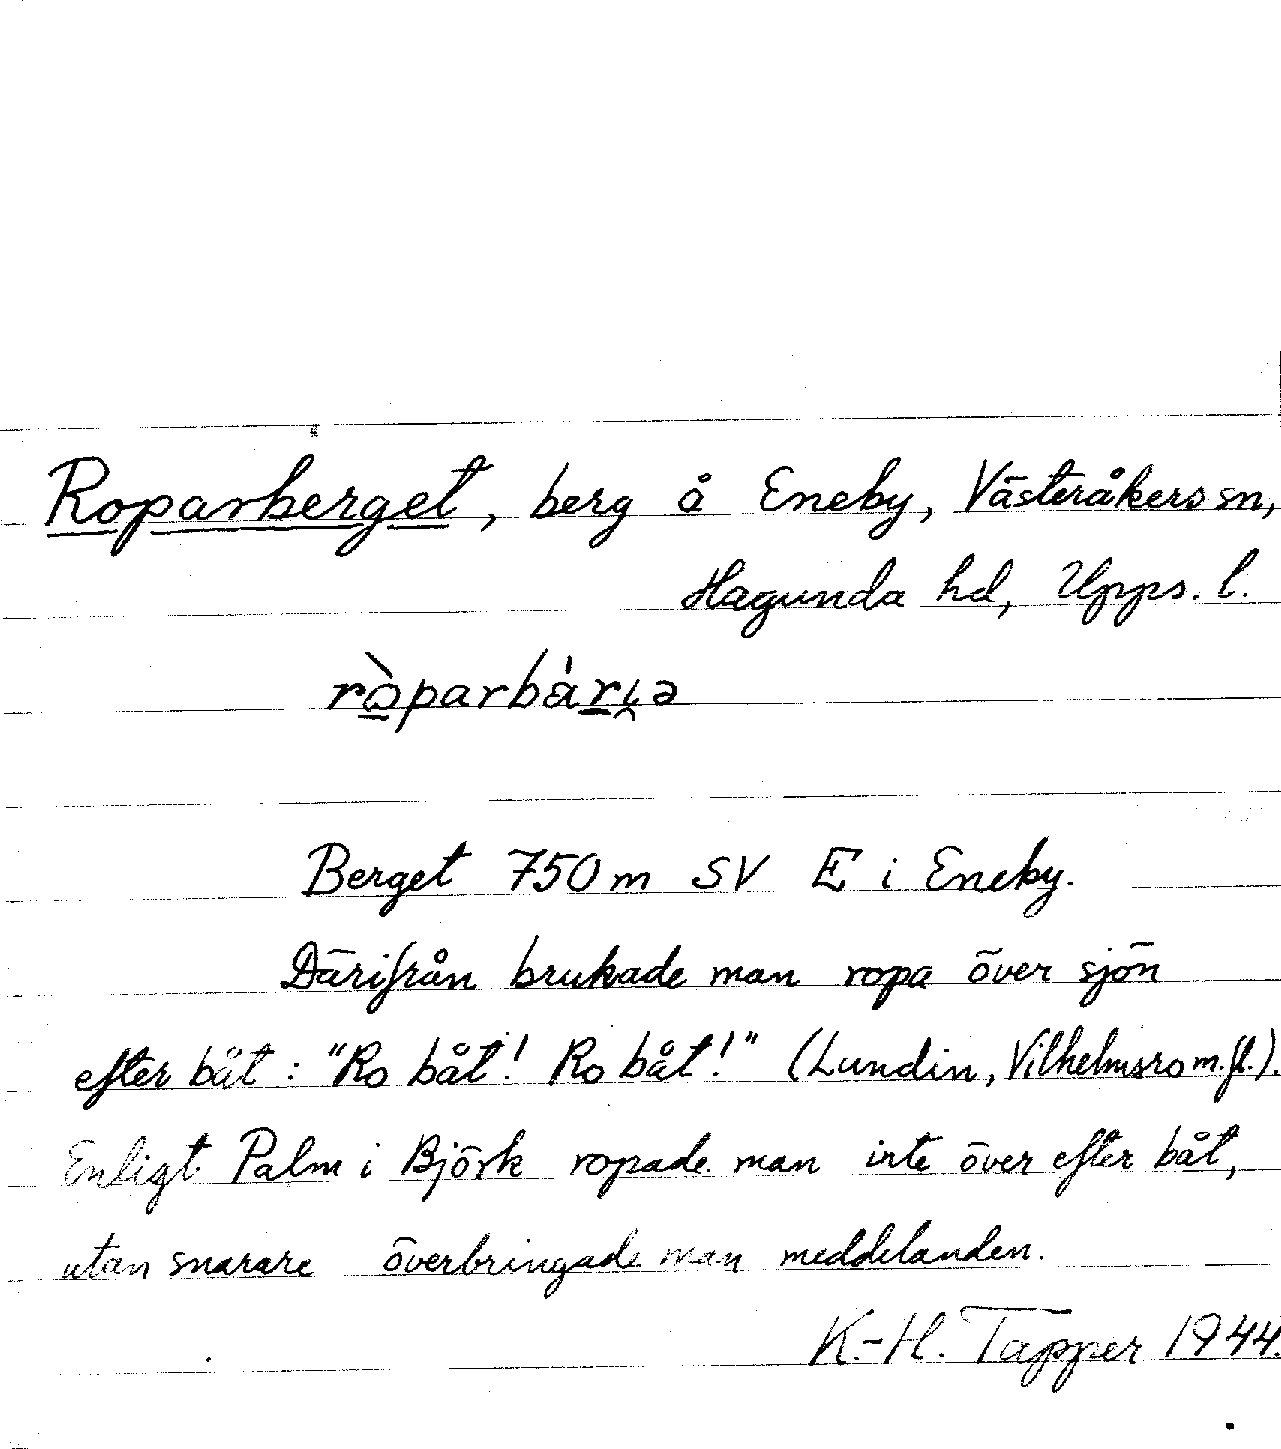 Roparberget, berg å Eneby, Västeråkers sn,
Hagunda hd, Upps. l.
Berget 750 m SV E i Eneby.
Därifrån brukade man ropa över sjön
efter båt: "Ro båt! Ro båt!" (Lundin, Vilhelmsro m.fl.).
Enligt Palm i Björk ropade man inte över efter båt,
utan snarare överbringade man meddelanden.
K.-H. Tapper 1944.